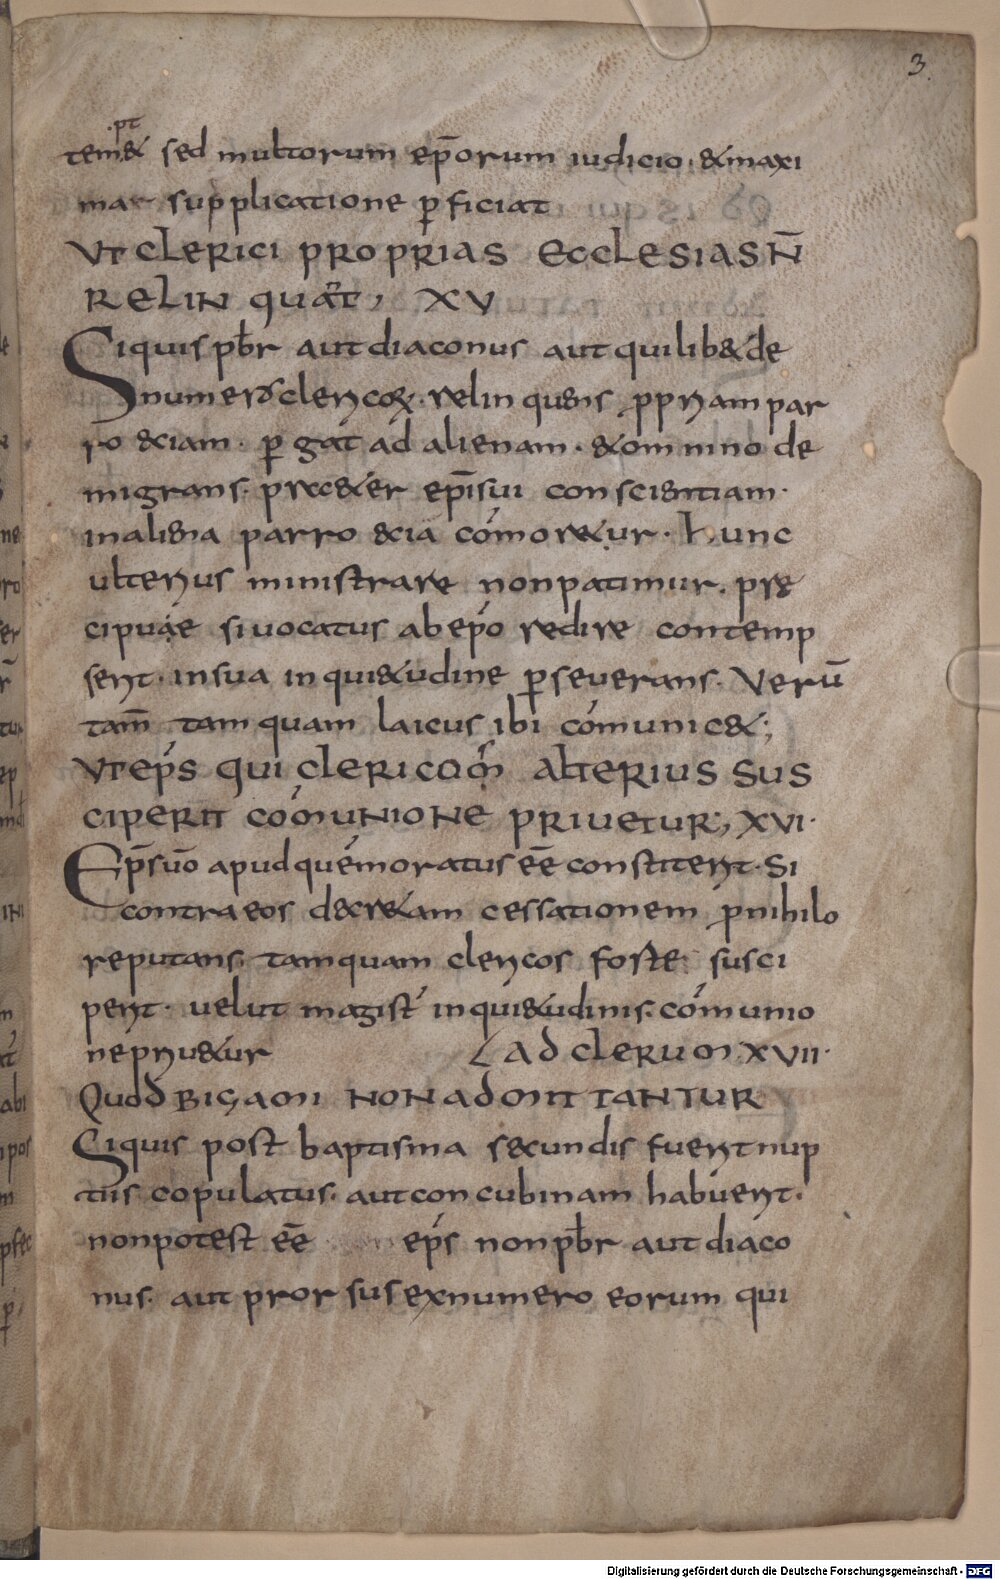 3.
.pt
tem& sed multorum ep̄orum iudicio · & maxi
ma supplicatione ꝑficiat
UT CLERICI PROPRIAS ECCLESIAS N̄
RELINQUAT, XV
Siquis pb̄r aut diaconus aut quilib& de
numero clericoꝝ · relinquens ꝓpriam par
ro&ciam · ꝑgat ad alienam · & omnino de
migrans · pr&er ep̄i sui conscientiam ·
in aliena parro&cia cōmor&ur · hunc
ulterius ministrare non patimur · prę
cipuae si vocatus ab ep̄o redire contemp
serit · in sua inqui&udine ꝑseverans · Verū
tam̄ tamquam laicus ibi cōmunic&;
UT EP̄S QUI CLERICŌM ALTERIUS SUS
CIPERIT COMUNIONE PRIUETUR; XVI ·
Ep̄s uō apud quē moratus eē constiterit · Si
contra eos decr&am cessationem ꝓ nihilo
reputans · tamquam clericos forte susci
perit · velut magist̄ inqui&udinis · cōmunio
ne priu&ur AD CLERUM · XVII ·
QUOD BIGAMI NON ADMITTANTUR
Siquis post baptisma secundis fuerit nup
tiis copulatus · aut concubinam habuerit ·
non potest eē ep̄s non pb̄r aut diaco
nus · aut prorsus ex numero eorum qui
Digitalisierung gefördert durch die Deutsche Forschungsgemeinschaft - DFG